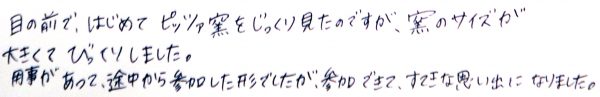 目の前で、はじめて ピッツァ窯をじっくり見たのですが、窯のサイズが
大きくて びっくりしました。
用事が あって、途中から参加した形でしたが、参加できて、すてきな思い出に なりました。